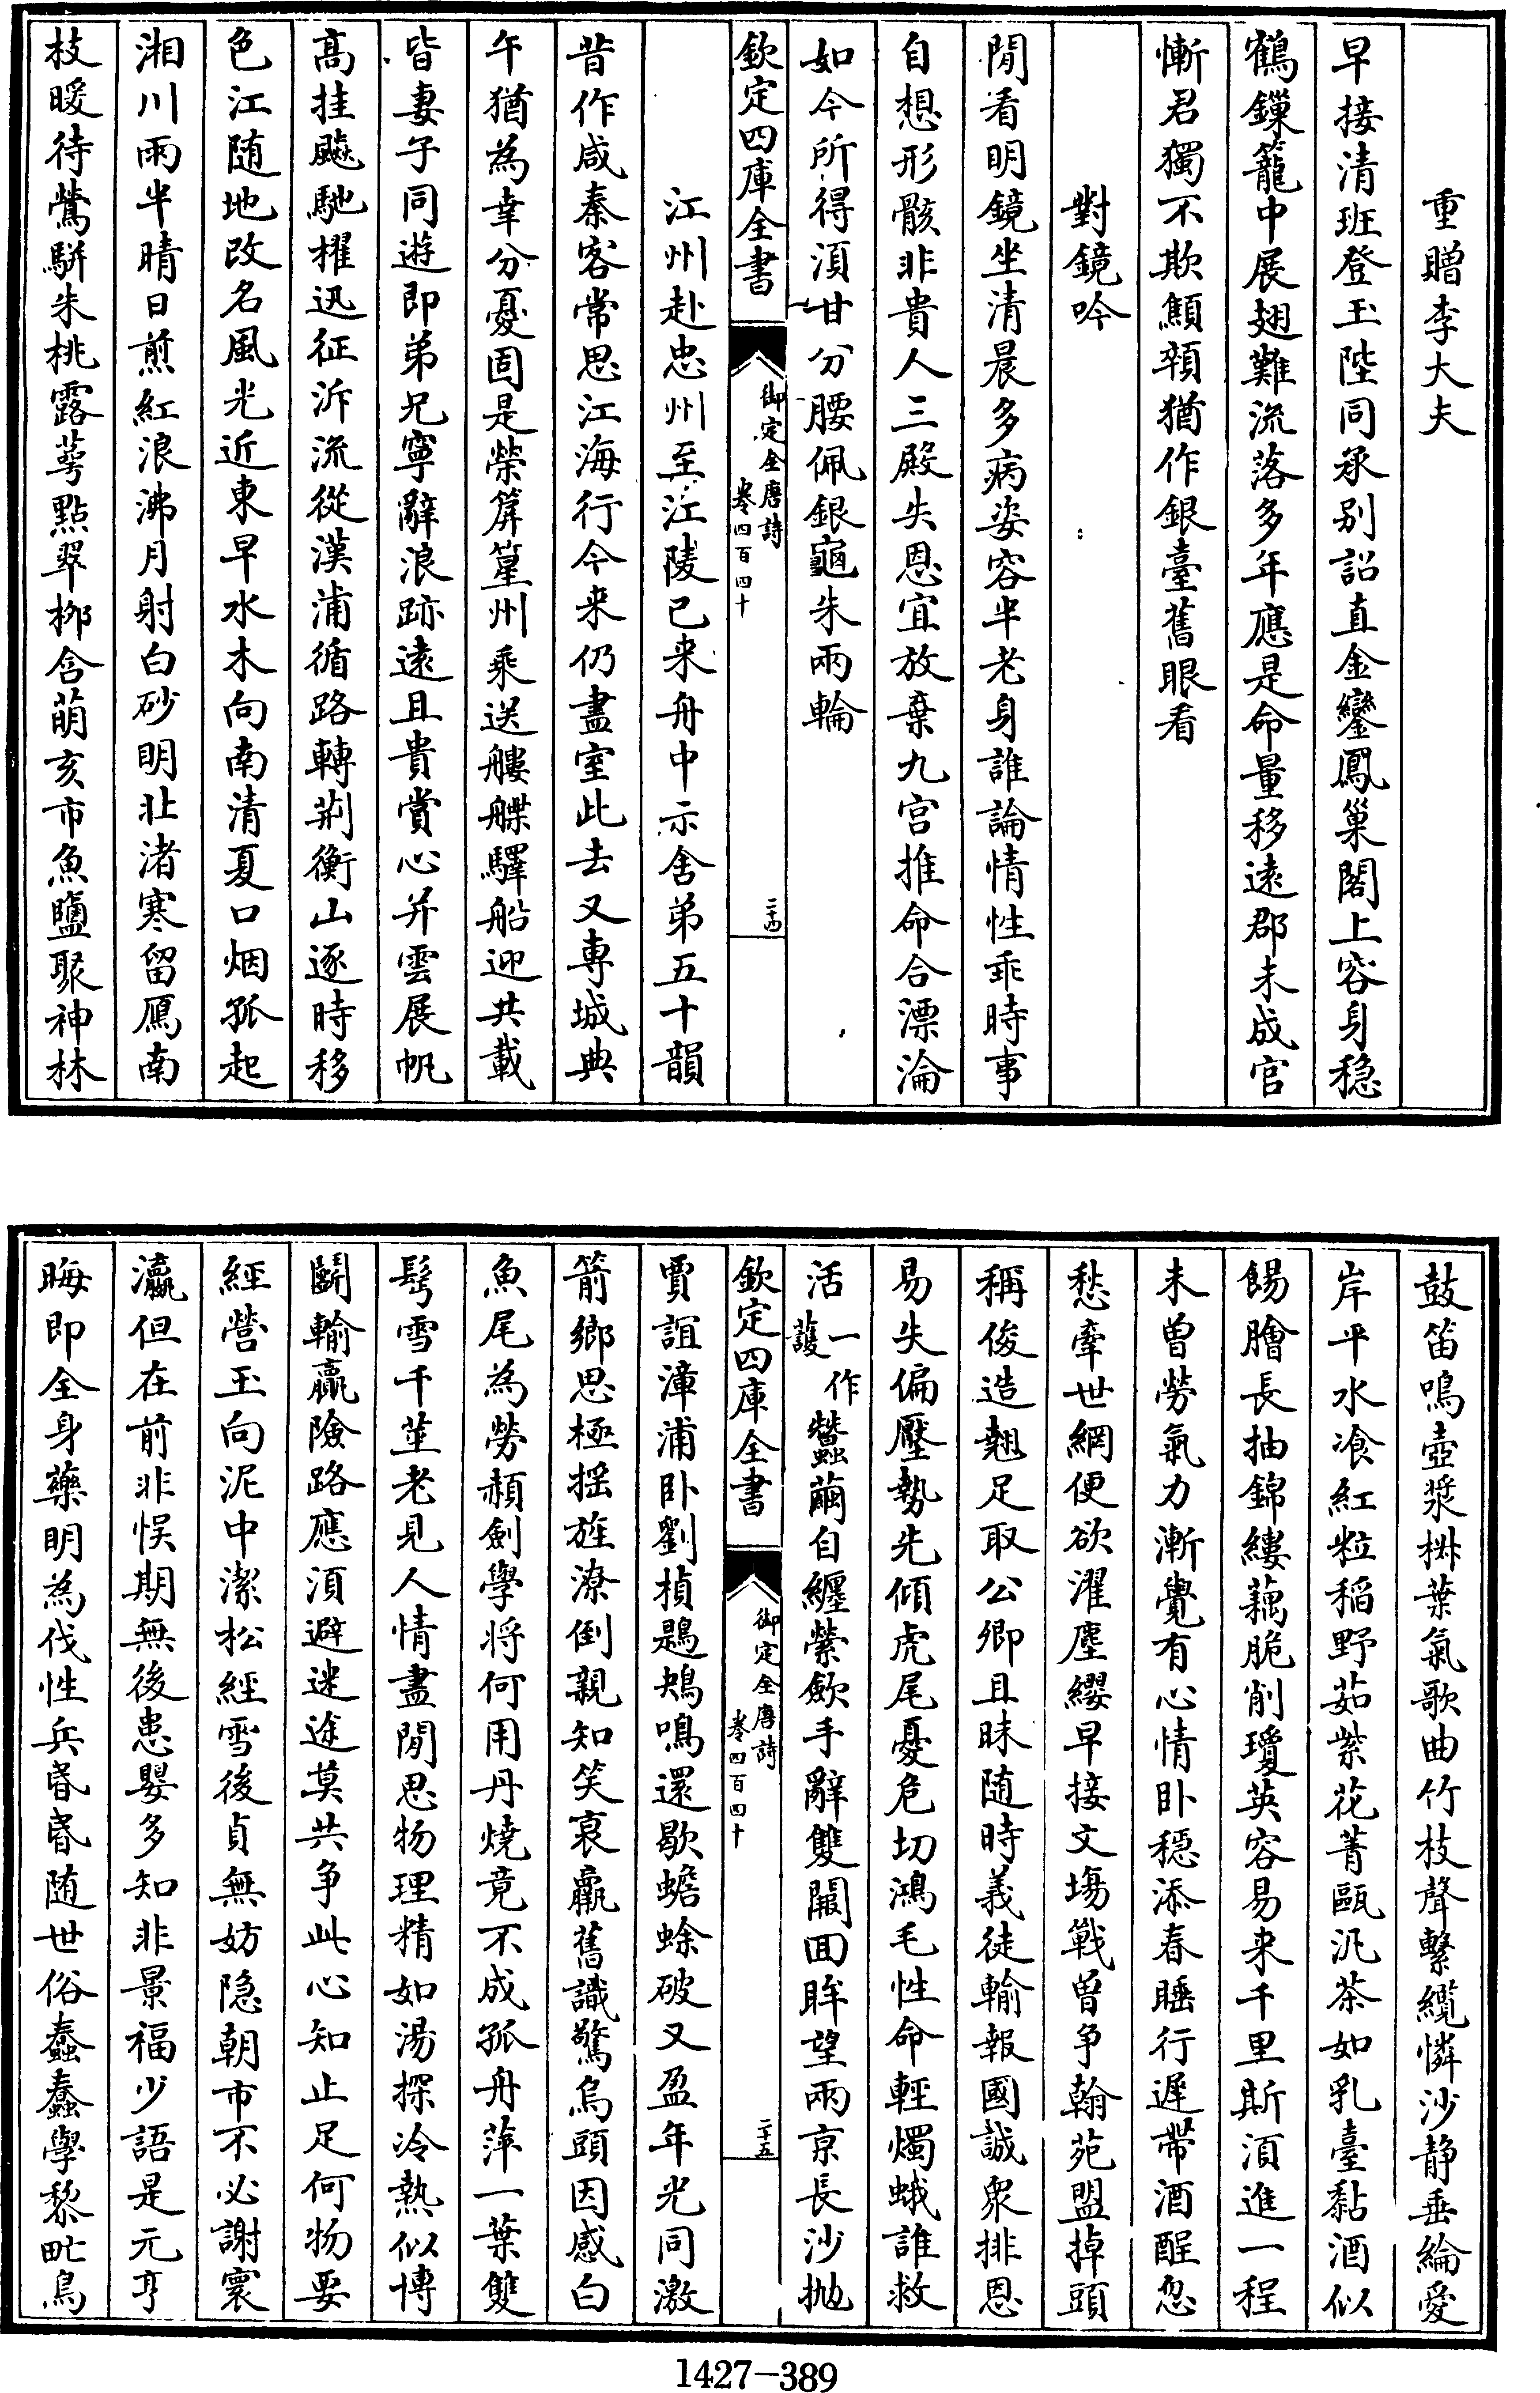 重贈李大夫
早接清班登玉陛同承别詔直金鑾鳳巢閣上容身穏
鶴鏁籠中展翅難流落多年應是命量移逺郡未成官
慚君獨不欺顦顇猶作銀臺舊眼看
對鏡吟
閒看明鏡坐清晨多病姿容半老身誰論情性乖時事
自想形骸非貴人三殿失恩宜放棄九宫推命合漂淪
如今所得湏甘分腰佩銀龜朱兩輪
欽定四庫全書
御定全唐詩
卷四百四十
二十四
江州赴忠州至江陵已来舟中示舍弟五十韻
昔作咸秦客常思江海行今来仍盡室此去又專城典
午猶為幸分憂固是榮箳篁州乘送艛艓驛船迎共載
皆妻子同遊即弟兄寧辭浪跡逺且貴賞心并雲展帆
髙挂飈馳櫂迅征泝流從漢浦循路轉荆衡山逐時移
色江随地改名風光近東早水木向南清夏口烟孤起
湘川雨半晴日煎紅浪沸月射白砂明北渚寒留鴈南
枝暖待鶯駢朱桃露萼點翠栁含萌亥市魚鹽聚神林
鼓笛鳴壺漿椒葉氣歌曲竹枝聲繫纜憐沙静垂綸愛
岸平水飡紅粒稻野茹紫花菁甌汎茶如乳臺黏酒似
餳膾長抽錦縷藕脆削瓊英容易来千里斯湏進一程
未曾勞氣力漸覺有心情卧穏添春睡行遲帶酒酲忽
愁牽世網便欲濯塵纓早接文塲戰曾争翰苑盟掉頭
稱俊造翹足取公卿且昧随時義徒輸報國誠衆排恩
易失偏壓勢先傾虎尾憂危切鴻毛性命輕燭蛾誰救
活一作護蠶繭自纏縈歛手辭雙闕回眸望兩京長沙抛
欽定四庫全書
御定全唐詩
卷四百四十
二十五
賈誼漳浦卧劉楨鶗鴂鳴還歇蟾蜍破又盈年光同激
箭鄉思極揺旌潦倒親知笑衰羸舊識驚烏頭因感白
魚尾為勞赬劍學将何用丹燒竟不成孤舟萍一葉雙
鬂雪千莖老見人情盡閒思物理精如湯探冷熱似博
鬭輸贏險路應湏避迷途莫共争此心知止足何物要
經營玉向泥中潔松經雪後貞無妨隐朝市不必謝寰
瀛但在前非悮期無後患嬰多知非景福少語是元亨
晦即全身藥明為伐性兵昬昬随世俗蠢蠢學黎甿鳥
1427-389